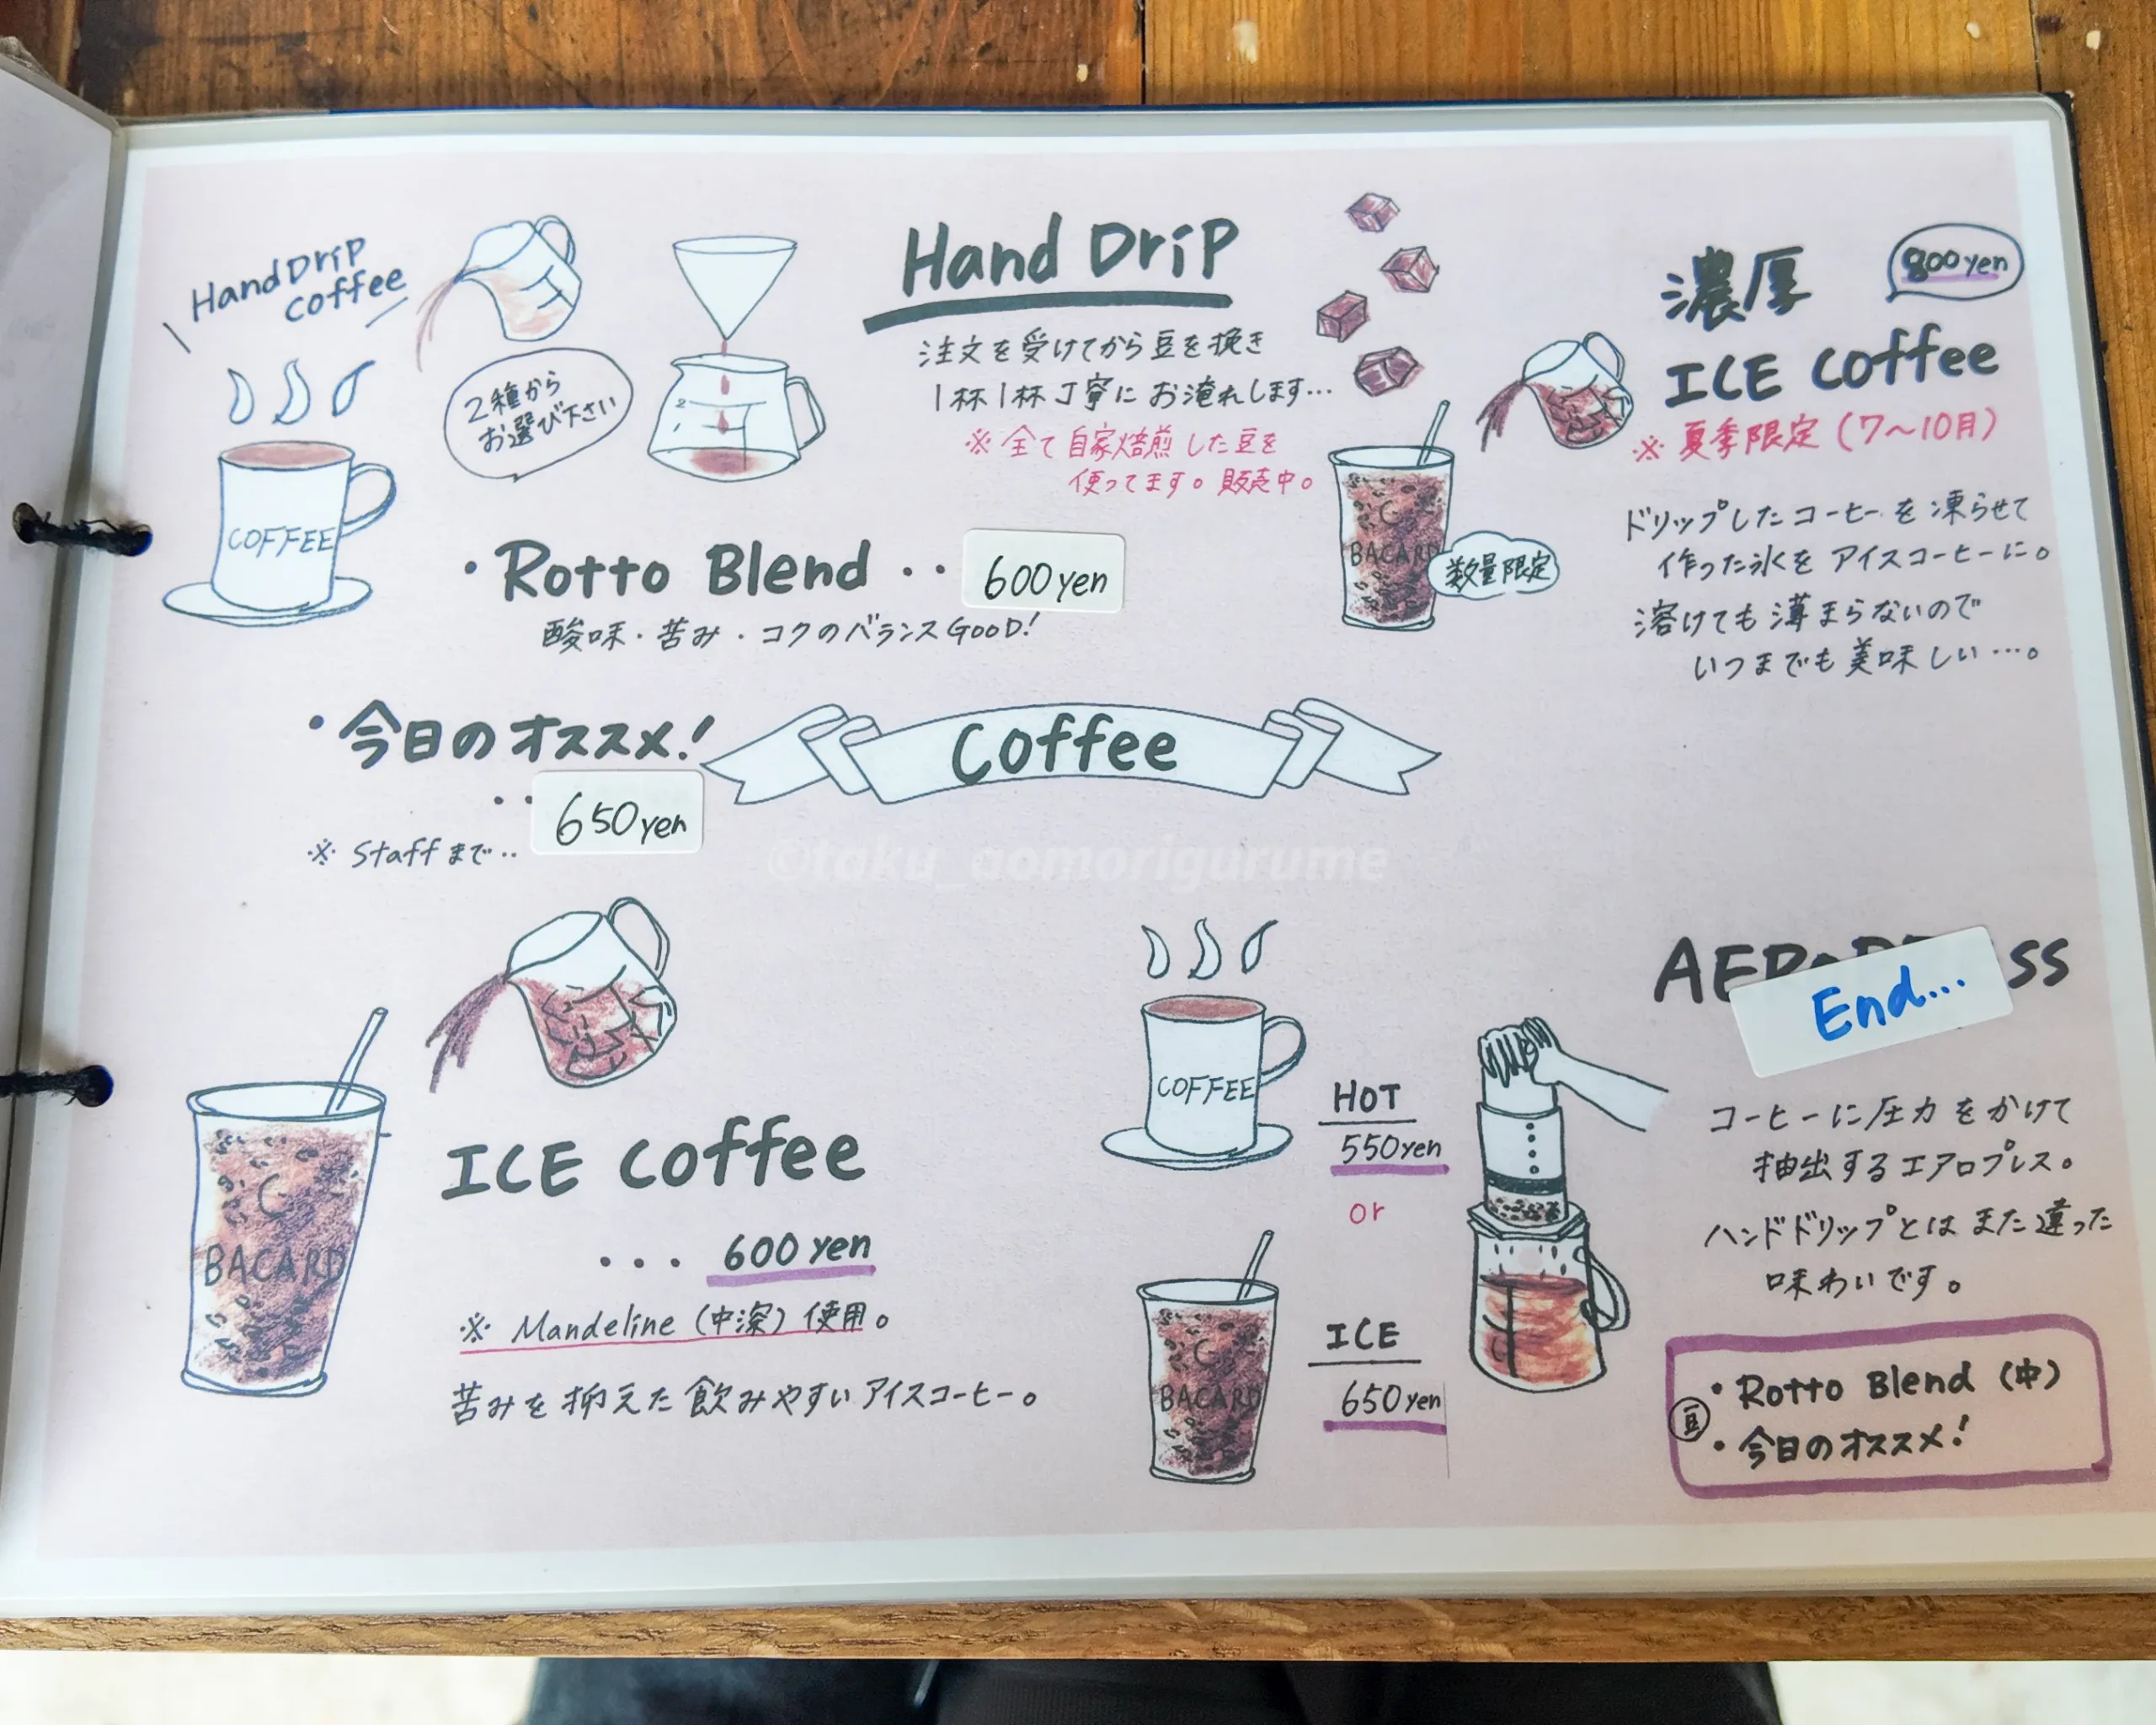 Hand Drip
coffee
2種から
お選び下さい
COFFEE
Hand Drip
注文を受けてから豆を挽き
1杯1杯丁寧にお淹れします…
※全て自家焙煎した豆を
使ってます。販売中。
・Rotto Blend ・・ 600yen
酸味・苦み・コクのバランスGOOD!
・今日のオススメ!
・・ 650yen
※Staffまで・・
Coffee
濃厚
800yen
ICE coffee
※夏季限定(7〜10月)
BACARD
数量限定
ドリップしたコーヒーを凍らせて
作った氷をアイスコーヒーに。
溶けても薄まらないので
いつまでも美味しい…。
©taku_aomorigurume
BACARD
ICE coffee
... 600yen
※Mandeline(中深)使用。
苦みを抑えた飲みやすいアイスコーヒー。
COFFEE
HOT
550yen
or
BACARD
ICE
650yen
End...
コーヒーに圧力をかけて
抽出するエアロプレス。
ハンドドリップとはまた違った
味わいです。
豆
・Rotto Blend(中)
・今日のオススメ!